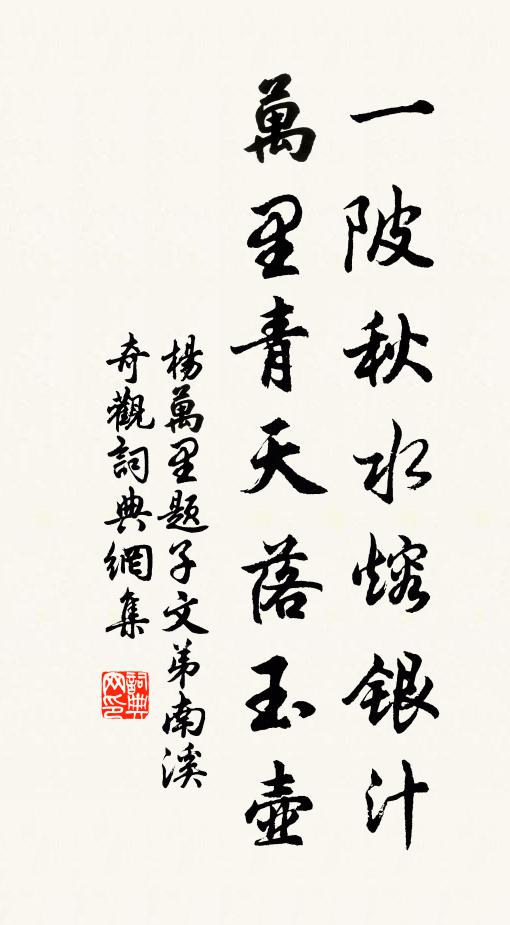 一陂秋水熔銀汁
萬里青天落玉壺
楊萬里題子文弟南溪
奇觀詞典網集
詞典网印